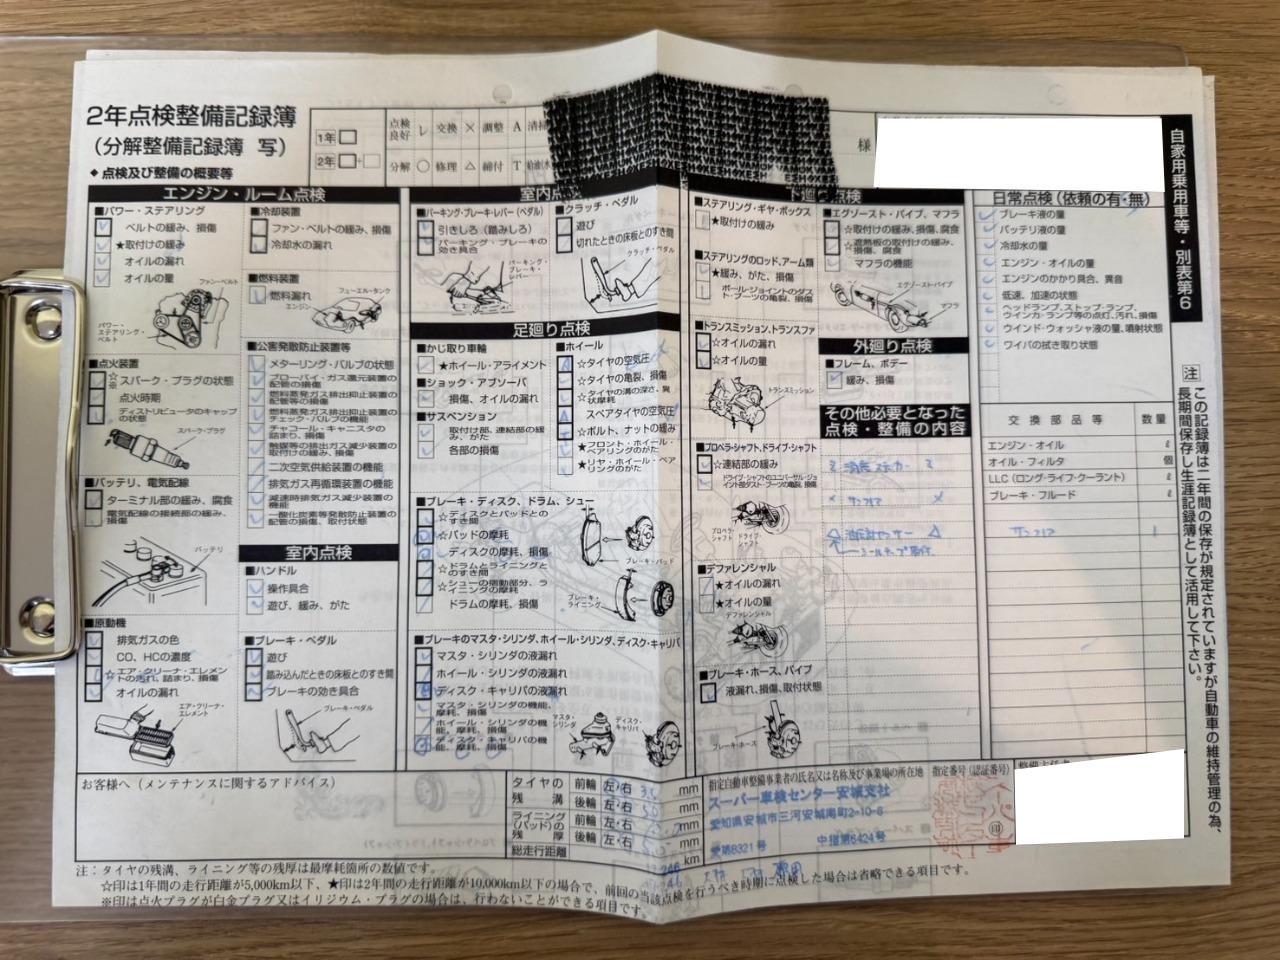 2年点検整備記録簿
(分解整備記録簿 写)
1年
2年
点検良好 レ 交換 × 調整 A 清掃
分解 ○ 修理 △ 締付 T
様
◆点検及び整備の概要等
エンジン・ルーム点検
■パワー・ステアリング
ベルトの緩み、損傷
★取付けの緩み
オイルの漏れ
オイルの量
ファン・ベルト
パワー・ステアリング・ベルト
■点火装置
スパーク・プラグの状態
点火時期
ディストリビュータのキャップの状態
スパーク・プラグ
■バッテリ、電気配線
ターミナル部の緩み、腐食
電気配線の接続部の緩み、損傷
バッテリ
■原動機
排気ガスの色
CO、HCの濃度
☆エア・クリーナ・エレメントの汚れ、詰まり、損傷
オイルの漏れ
エア・クリーナ・エレメント
■冷却装置
ファン・ベルトの緩み、損傷
冷却水の漏れ
■燃料装置
燃料漏れ
フューエル・タンク
エンジン
■公害発散防止装置等
メターリング・バルブの状態
ブローバイ・ガス還元装置の配管の損傷
燃料蒸発ガス排出抑止装置の配管等の損傷
燃料蒸発ガス排出抑止装置のチェック・バルブの機能
チャコール・キャニスタの詰まり、損傷
触媒等の排出ガス減少装置の取付けの緩み、損傷
二次空気供給装置の機能
排気ガス再循環装置の機能
減速時排気ガス減少装置の機能
一酸化炭素等発散防止装置の配管の損傷、取付状態
室内点検
■ハンドル
操作具合
遊び、緩み、がた
■ブレーキ・ペダル
遊び
踏み込んだときの床板とのすき間
ブレーキの効き具合
ブレーキ・ペダル
■パーキング・ブレーキ・レバー(ペダル)
引きしろ(踏みしろ)
パーキング・ブレーキの効き具合
パーキング・ブレーキ・レバー
■クラッチ・ペダル
遊び
切れたときの床板とのすき間
クラッチ・ペダル
足廻り点検
■かじ取り車輪
★ホイール・アライメント
■ショック・アブソーバ
損傷、オイルの漏れ
■サスペンション
取付部、連結部の緩み、がた
各部の損傷
■ホイール
☆タイヤの空気圧
☆タイヤの亀裂、損傷
☆タイヤの溝の深さ、異状摩耗
スペアタイヤの空気圧
☆ボルト、ナットの緩み
★フロント・ホイール・ベアリングのがた
★リヤ・ホイール・ベアリングのがた
■ブレーキ・ディスク、ドラム、シュー
☆ディスクとパッドとのすき間
☆パッドの摩耗
ディスクの摩耗、損傷
☆ドラムとライニングとのすき間
☆シューの摺動部分、ライニングの摩耗
ドラムの摩耗、損傷
ブレーキ・パッド
ブレーキ・ライニング
■ブレーキのマスタ・シリンダ、ホイール・シリンダ、ディスク・キャリパ
マスタ・シリンダの液漏れ
ホイール・シリンダの液漏れ
ディスク・キャリパの液漏れ
マスタ・シリンダの機能、摩耗、損傷
ホイール・シリンダの機能、摩耗、損傷
ディスク・キャリパの機能、摩耗、損傷
マスタ・シリンダ
ディスク・キャリパ
下廻り点検
■ステアリング・ギヤ・ボックス
★取付けの緩み
■ステアリングのロッド、アーム類
★緩み、がた、損傷
ボール・ジョイントのダスト・ブーツの亀裂、損傷
■トランスミッション、トランスファ
☆オイルの漏れ
☆オイルの量
トランスミッション
■プロペラ・シャフト、ドライブ・シャフト
☆連結部の緩み
ドライブ・シャフトのユニバーサル・ジョイント部ダスト・ブーツの亀裂、損傷
プロペラ・シャフト
ドライブ・シャフト
■デファレンシャル
★オイルの漏れ
★オイルの量
デファレンシャル
■ブレーキ・ホース、パイプ
液漏れ、損傷、取付状態
ブレーキ・ホース
■エグゾースト・パイプ、マフラ
☆取付けの緩み、損傷、腐食
☆遮熱板の取付けの緩み、損傷、腐食
マフラの機能
エグゾースト・パイプ
マフラ
外廻り点検
■フレーム、ボデー
緩み、損傷
その他必要となった点検・整備の内容
日常点検(依頼の有・無)
ブレーキ液の量
バッテリ液の量
冷却水の量
エンジン・オイルの量
エンジンのかかり具合、異音
低速、加速の状態
ヘッドランプ、ストップ・ランプ、ウインカ・ランプ等の点灯、汚れ、損傷
ウインド・ウォッシャ液の量、噴射状態
ワイパの拭き取り状態
交換部品等 数量
エンジン・オイル ℓ
オイル・フィルタ 個
LLC(ロング・ライフ・クーラント) ℓ
ブレーキ・フルード ℓ
1
自家用乗用車等・別表第6
注 この記録簿は二年間の保存が規定されていますが自動車の維持管理の為、長期間保存し生涯記録簿として活用して下さい。
お客様へ(メンテナンスに関するアドバイス)
タイヤの残溝 前輪 左・右 mm
後輪 左・右 mm
ライニング(パッド)の残厚 前輪 左・右 mm
後輪 左・右 mm
総走行距離 km
指定自動車整備事業者の氏名又は名称及び事業場の所在地
指定番号(認証番号)
スーパー車検センター安城支社
愛知県安城市三河安城南町2-10-6
愛第8321号 中指第6424号
印
注:タイヤの残溝、ライニング等の残厚は最摩耗箇所の数値です。
☆印は1年間の走行距離が5,000km以下、★印は2年間の走行距離が10,000km以下の場合で、前回の当該点検を行うべき時期に点検した場合は省略できる項目です。
※印は点火プラグが白金プラグ又はイリジウム・プラグの場合は、行わないことができる項目です。